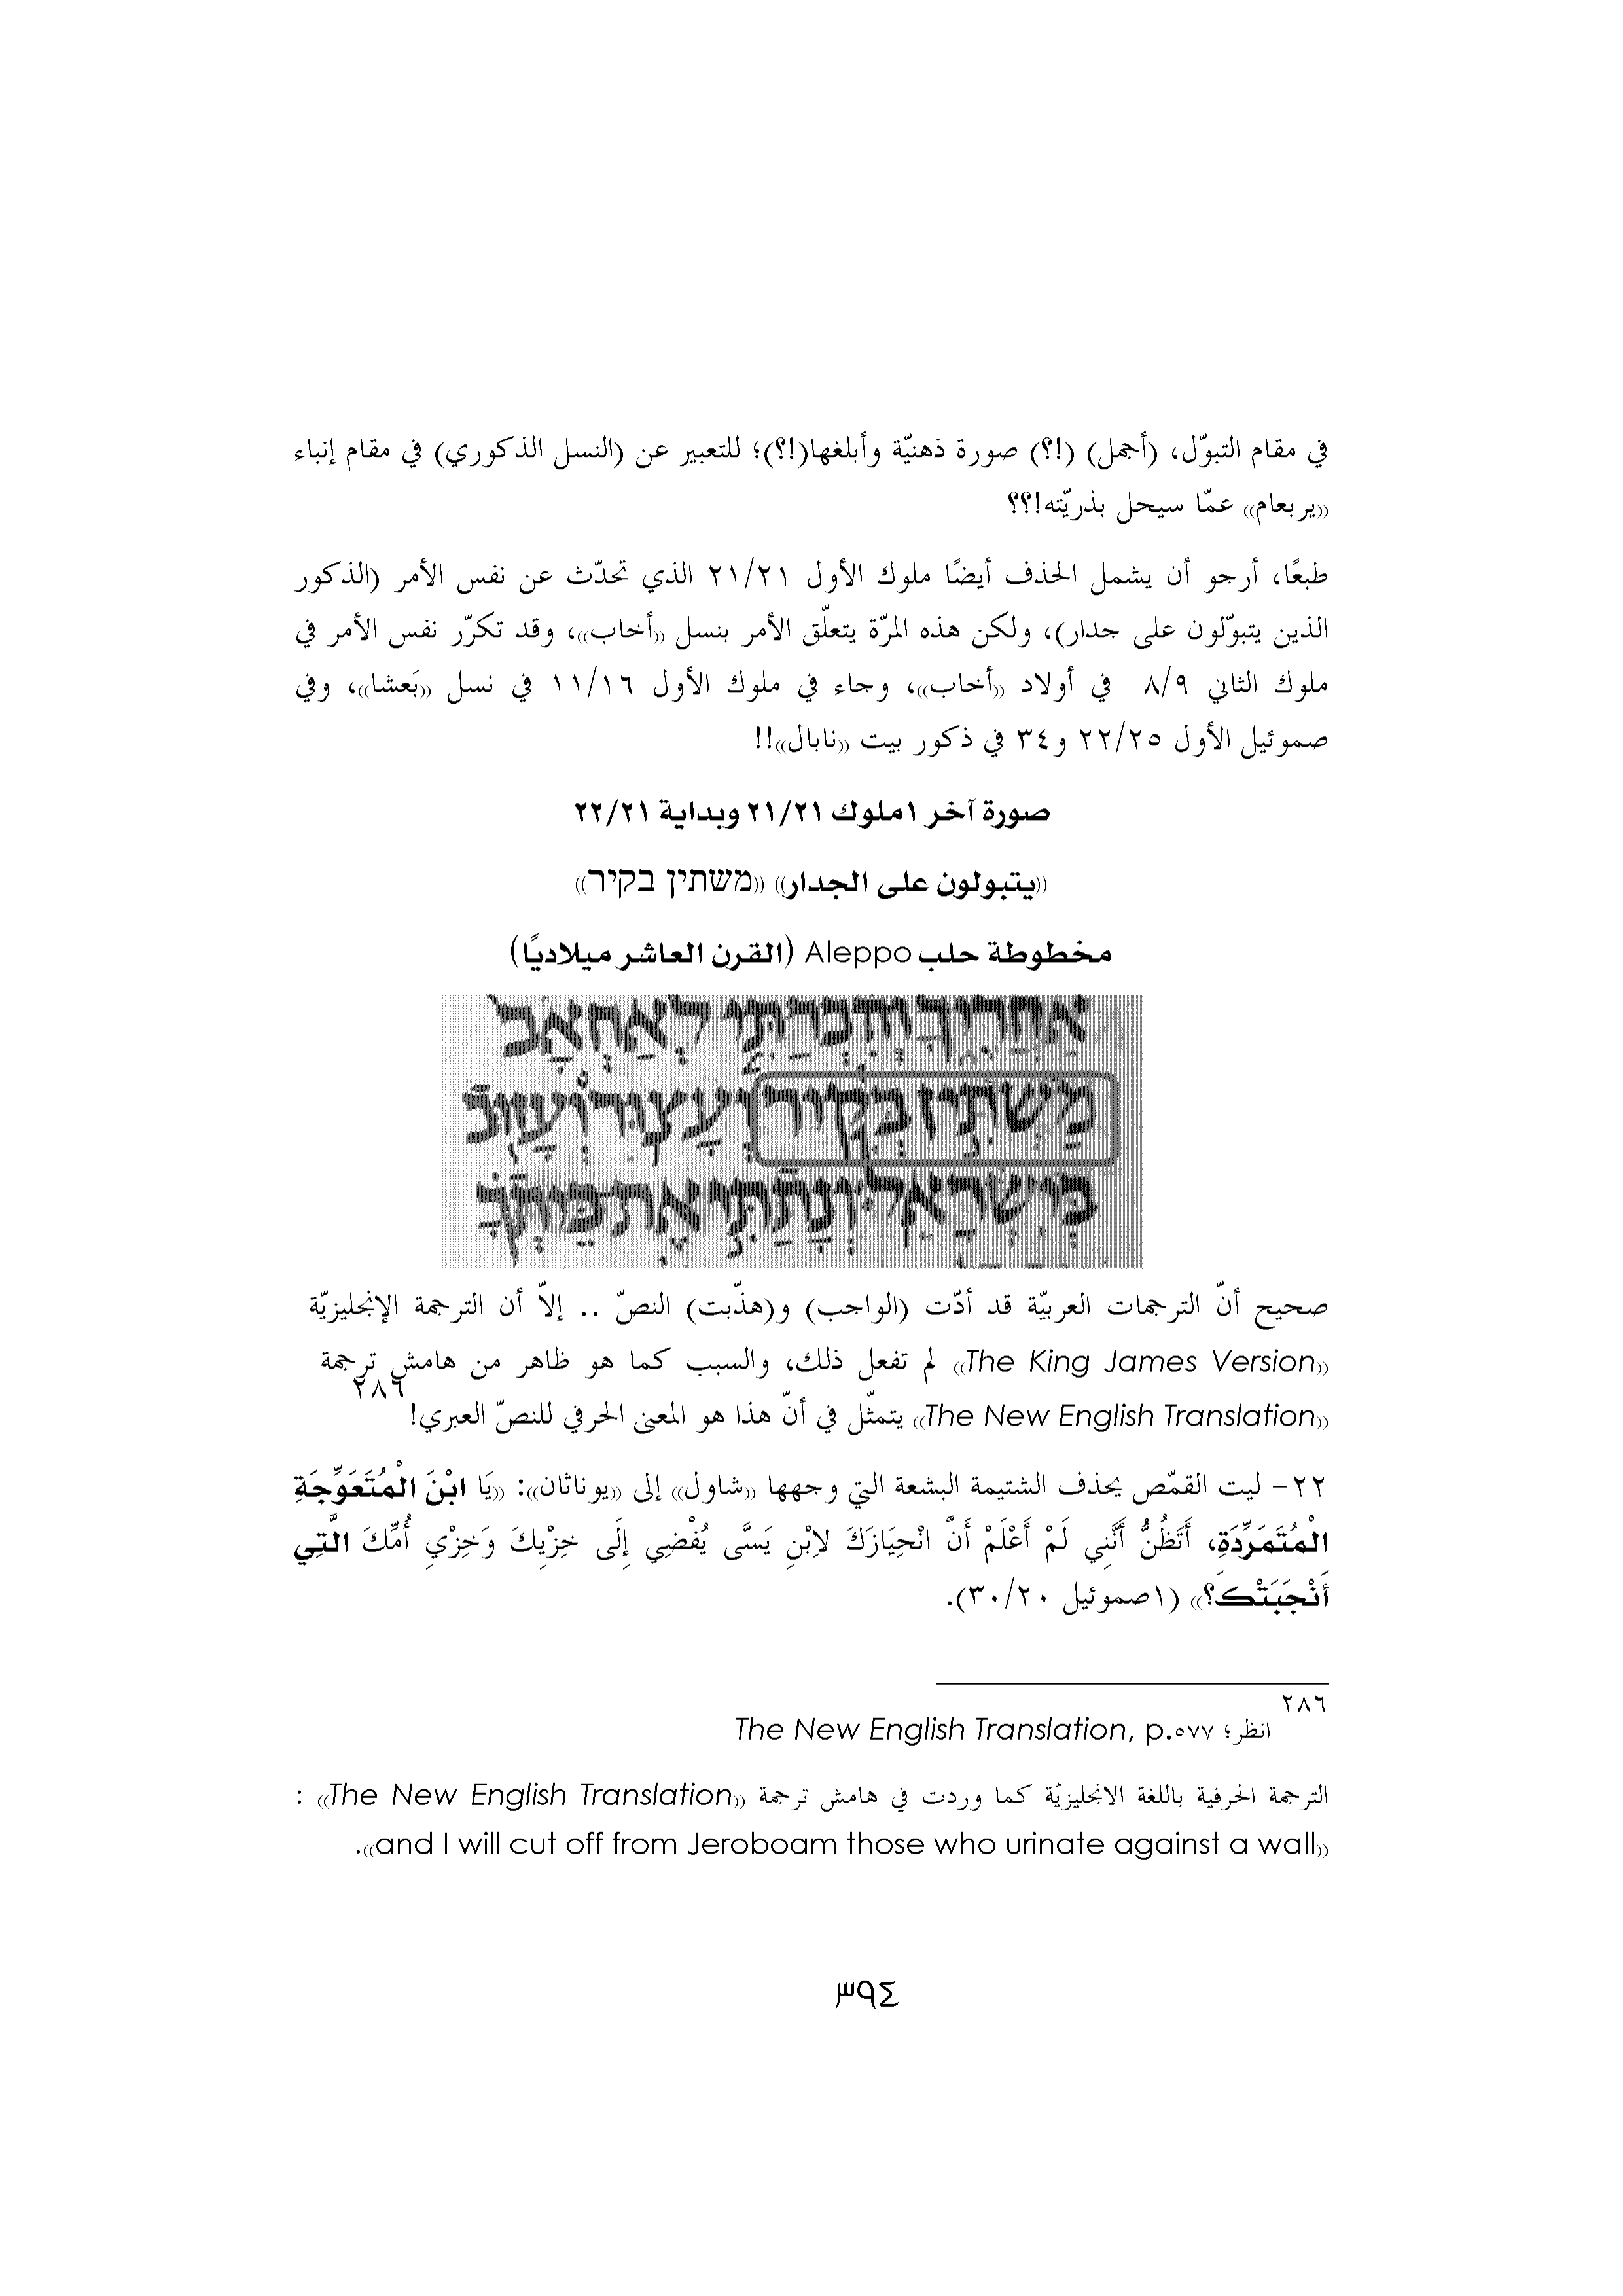 في مقام التبوّل، (أجمل) (!؟) صورة ذهنيّة وأبلغها(!؟)؛ للتعبير عن (النسل الذكوري) في مقام إنباء
((يربعام)) عمّا سيحل بذريّته!؟؟
طبعًا، أرجو أن يشمل الحذف أيضًا ملوك الأول ٢١/٢١ الذي تحدّث عن نفس الأمر (الذكور
الذين يتبوّلون على جدار)، ولكن هذه المرّة يتعلّق الأمر بنسل ((أخاب))، وقد تكرّر نفس الأمر في
ملوك الثاني ٨/٩ في أولاد ((أخاب))، وجاء في ملوك الأول ١١/١٦ في نسل ((بَعشا))، وفي
صموئيل الأول ٢٢/٢٥ و٣٤ في ذكور بيت ((نابال))!!
صورة آخر ١ملوك ٢١/٢١ وبداية ٢٢/٢١
((يتبولون على الجدار)) ((משתין בקיר))
مخطوطة حلب Aleppo (القرن العاشر ميلاديًا)
אַחֲרֶיךָ וְהִכְרַתִּי לְאַחְאָב
מַשְׁתִּין בְּקִיר וְעָצוּר וְעָזוּב
בְּיִשְׂרָאֵל׃ וְנָתַתִּי אֶת בֵּיתְךָ
صحيح أنّ الترجمات العربيّة قد أدّت (الواجب) و(هذّبت) النصّ .. إلاّ أن الترجمة الإنجليزيّة
((The King James Version)) لم تفعل ذلك، والسبب كما هو ظاهر من هامش ترجمة
((The New English Translation)) يتمثّل في أنّ هذا هو المعنى الحرفي للنصّ العبري!٢٨٦
٢٢- ليت القمّص يحذف الشتيمة البشعة التي وجهها ((شاول)) إلى ((يوناثان)): ((يَا ابْنَ الْمُتَعَوِّجَةِ
الْمُتَمَرِّدَةِ، أَتَظُنُّ أَنَّنِي لَمْ أَعْلَمْ أَنَّ انْحِيَازَكَ لاِبْنِ يَسَّى يُفْضِي إِلَى خِزْيِكَ وَخِزْيِ أُمِّكَ الَّتِي
أَنْجَبَتْكَ؟)) (١صموئيل ٣٠/٢٠).
٢٨٦ انظر؛ The New English Translation, p.٥٧٧
الترجمة الحرفية باللغة الانجليزيّة كما وردت في هامش ترجمة ((The New English Translation)) :
((and I will cut off from Jeroboam those who urinate against a wall)).
٣٩٤